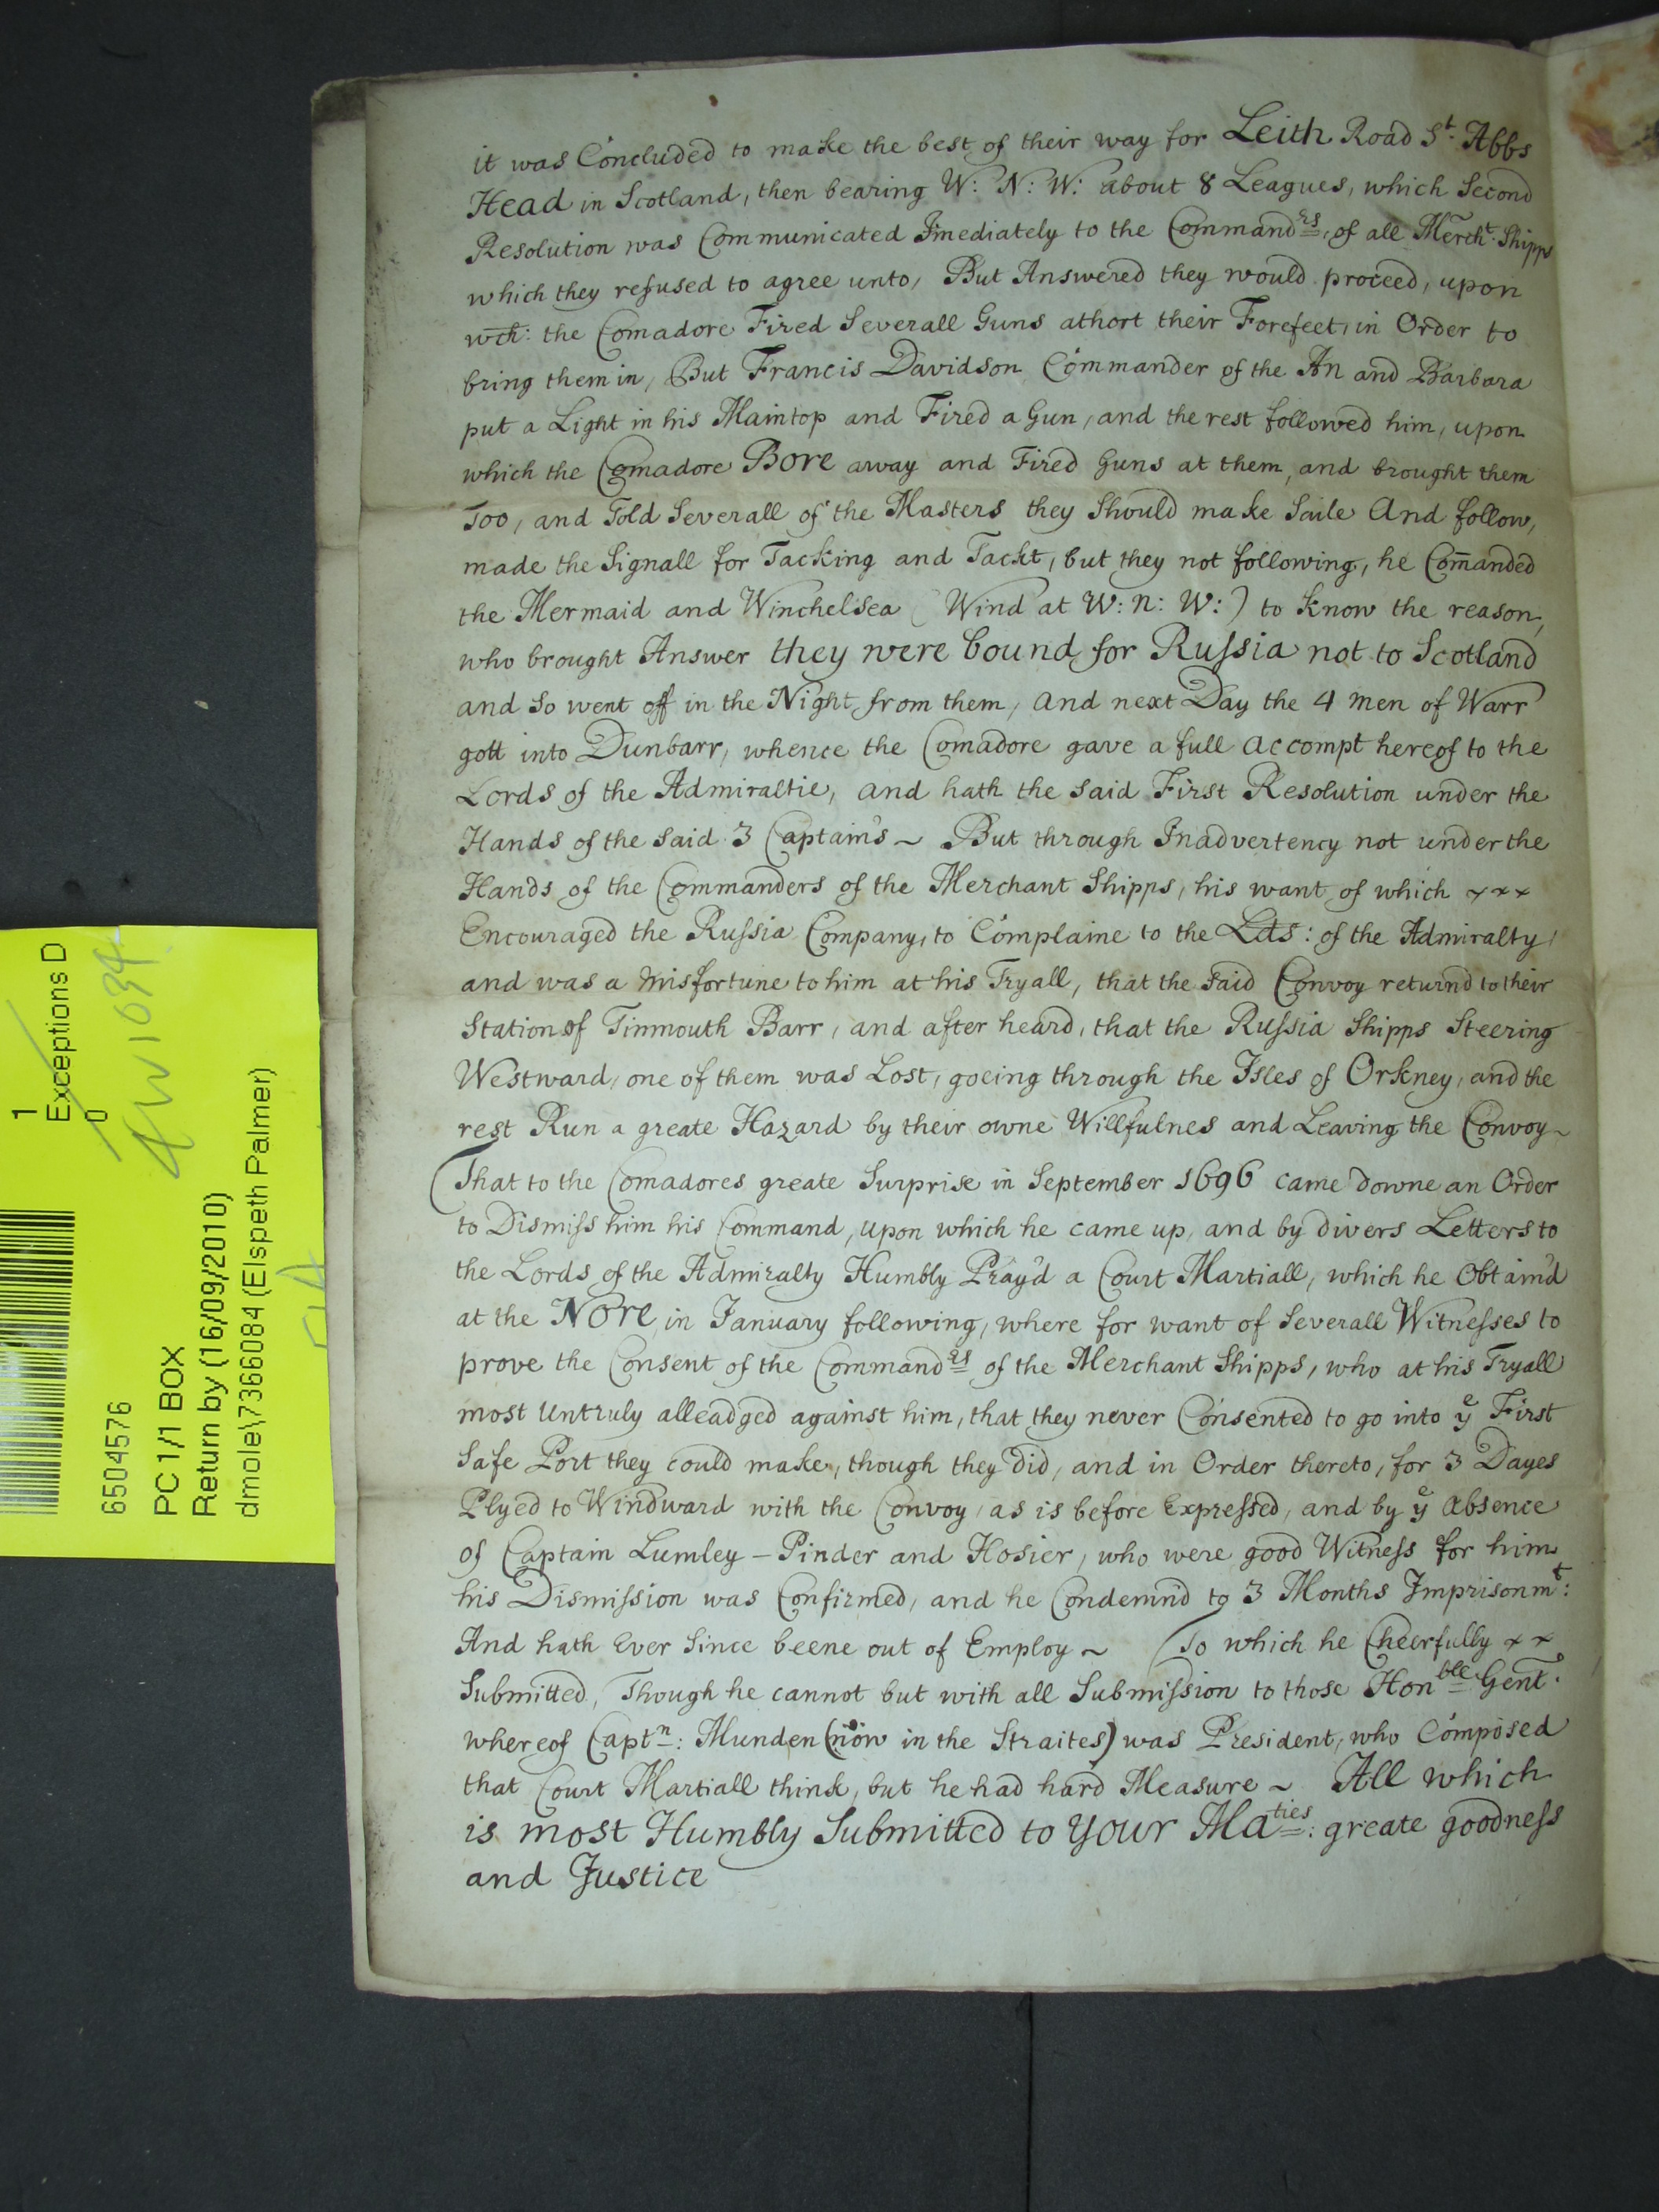 it was Concluded to make the best of their way for Leith Road St. Abbs
Head in Scotland, then bearing W: N: W: about 8 Leagues, which Second
Resolution was Communicated Imediately to the Commandrs, of all Mercht. Shipps
which they refused to agree unto, But Answered they would proceed, upon
wch: the Comadore Fired Severall Guns athort their Forefeet, in Order to
bring them in, But Francis Davidson Commander of the An and Barbara
put a Light in his Maintop and Fired a Gun, and the rest followed him, upon
which the Comadore Bore away and Fired Guns at them, and brought them
Too, and Told Severall of the Masters they Should make Saile And follow,
made the Signall for Tacking and Tackt, but they not following, he Com̄anded
the Mermaid and Winchelsea (Wind at W: N: W:) to know the reason,
who brought Answer they were bound for Russia not to Scotland
and so went off in the Night from them, and next Day the 4 men of Warr
gott into Dunbarr, whence the Comadore gave a full accompt hereof to the
Lords of the Admiraltie, and hath the said First Resolution under the
Hands of the said 3 Captain's ~ But through Inadvertency not under the
Hands of the Commanders of the Merchant Shipps, his want of which x x x
Encouraged the Russia Company, to Complaine to the Lds: of the Admiralty,
and was a misfortune to him at his Tryall, that the said Convoy returnd to their
Station of Tinmouth Barr, and after heard, that the Russia Shipps Steering
Westward, one of them was Lost, goeing through the Isles of Orkney, and the
rest Run a greate Hazard by their owne Willfulnes and Leaving the Convoy ~
That to the Comadores greate Surprise in September 1696 came downe an Order
to Dismiss him his Command, upon which he came up, and by divers Letters to
the Lords of the Admiralty Humbly Pray'd a Court Martiall, which he Obtain'd
at the Nore, in January following, where for want of Severall Witnesses to
prove the Consent of the Commandrs of the Merchant Shipps, who at his Tryall
most Untruly alleadged against him, that they never Consented to go into ye First
Safe Port they could make, though they did, and in Order thereto, for 3 Dayes
Plyed to Windward with the Convoy, as is before Expressed, and by ye absence
of Captain Lumley – Pinder and Hosier, who were good Witness for him
his Dismission was Confirmed, and he Condemn'd to 3 Months Imprisonmt:
And hath Ever Since beene out of Employ ~ To which he Cheerfully x x
Submitted, Though he cannot but with all Submission to those Honble Gent.
whereof Captn: Munden (now in the Straites) was President, who Composed
that Court Martiall think, but he had hard Measure ~ All which
is most Humbly Submitted to your Maties: greate goodness
and Justice
1
Exceptions D
0
6504576
PC 1/1 BOX
Return by (16/09/2010)
dmole\7366084 (Elspeth Palmer)